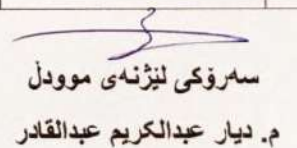 سەرۆکی لێژنەی موودڵ
م. دیار عبدالکریم عبدالقادر